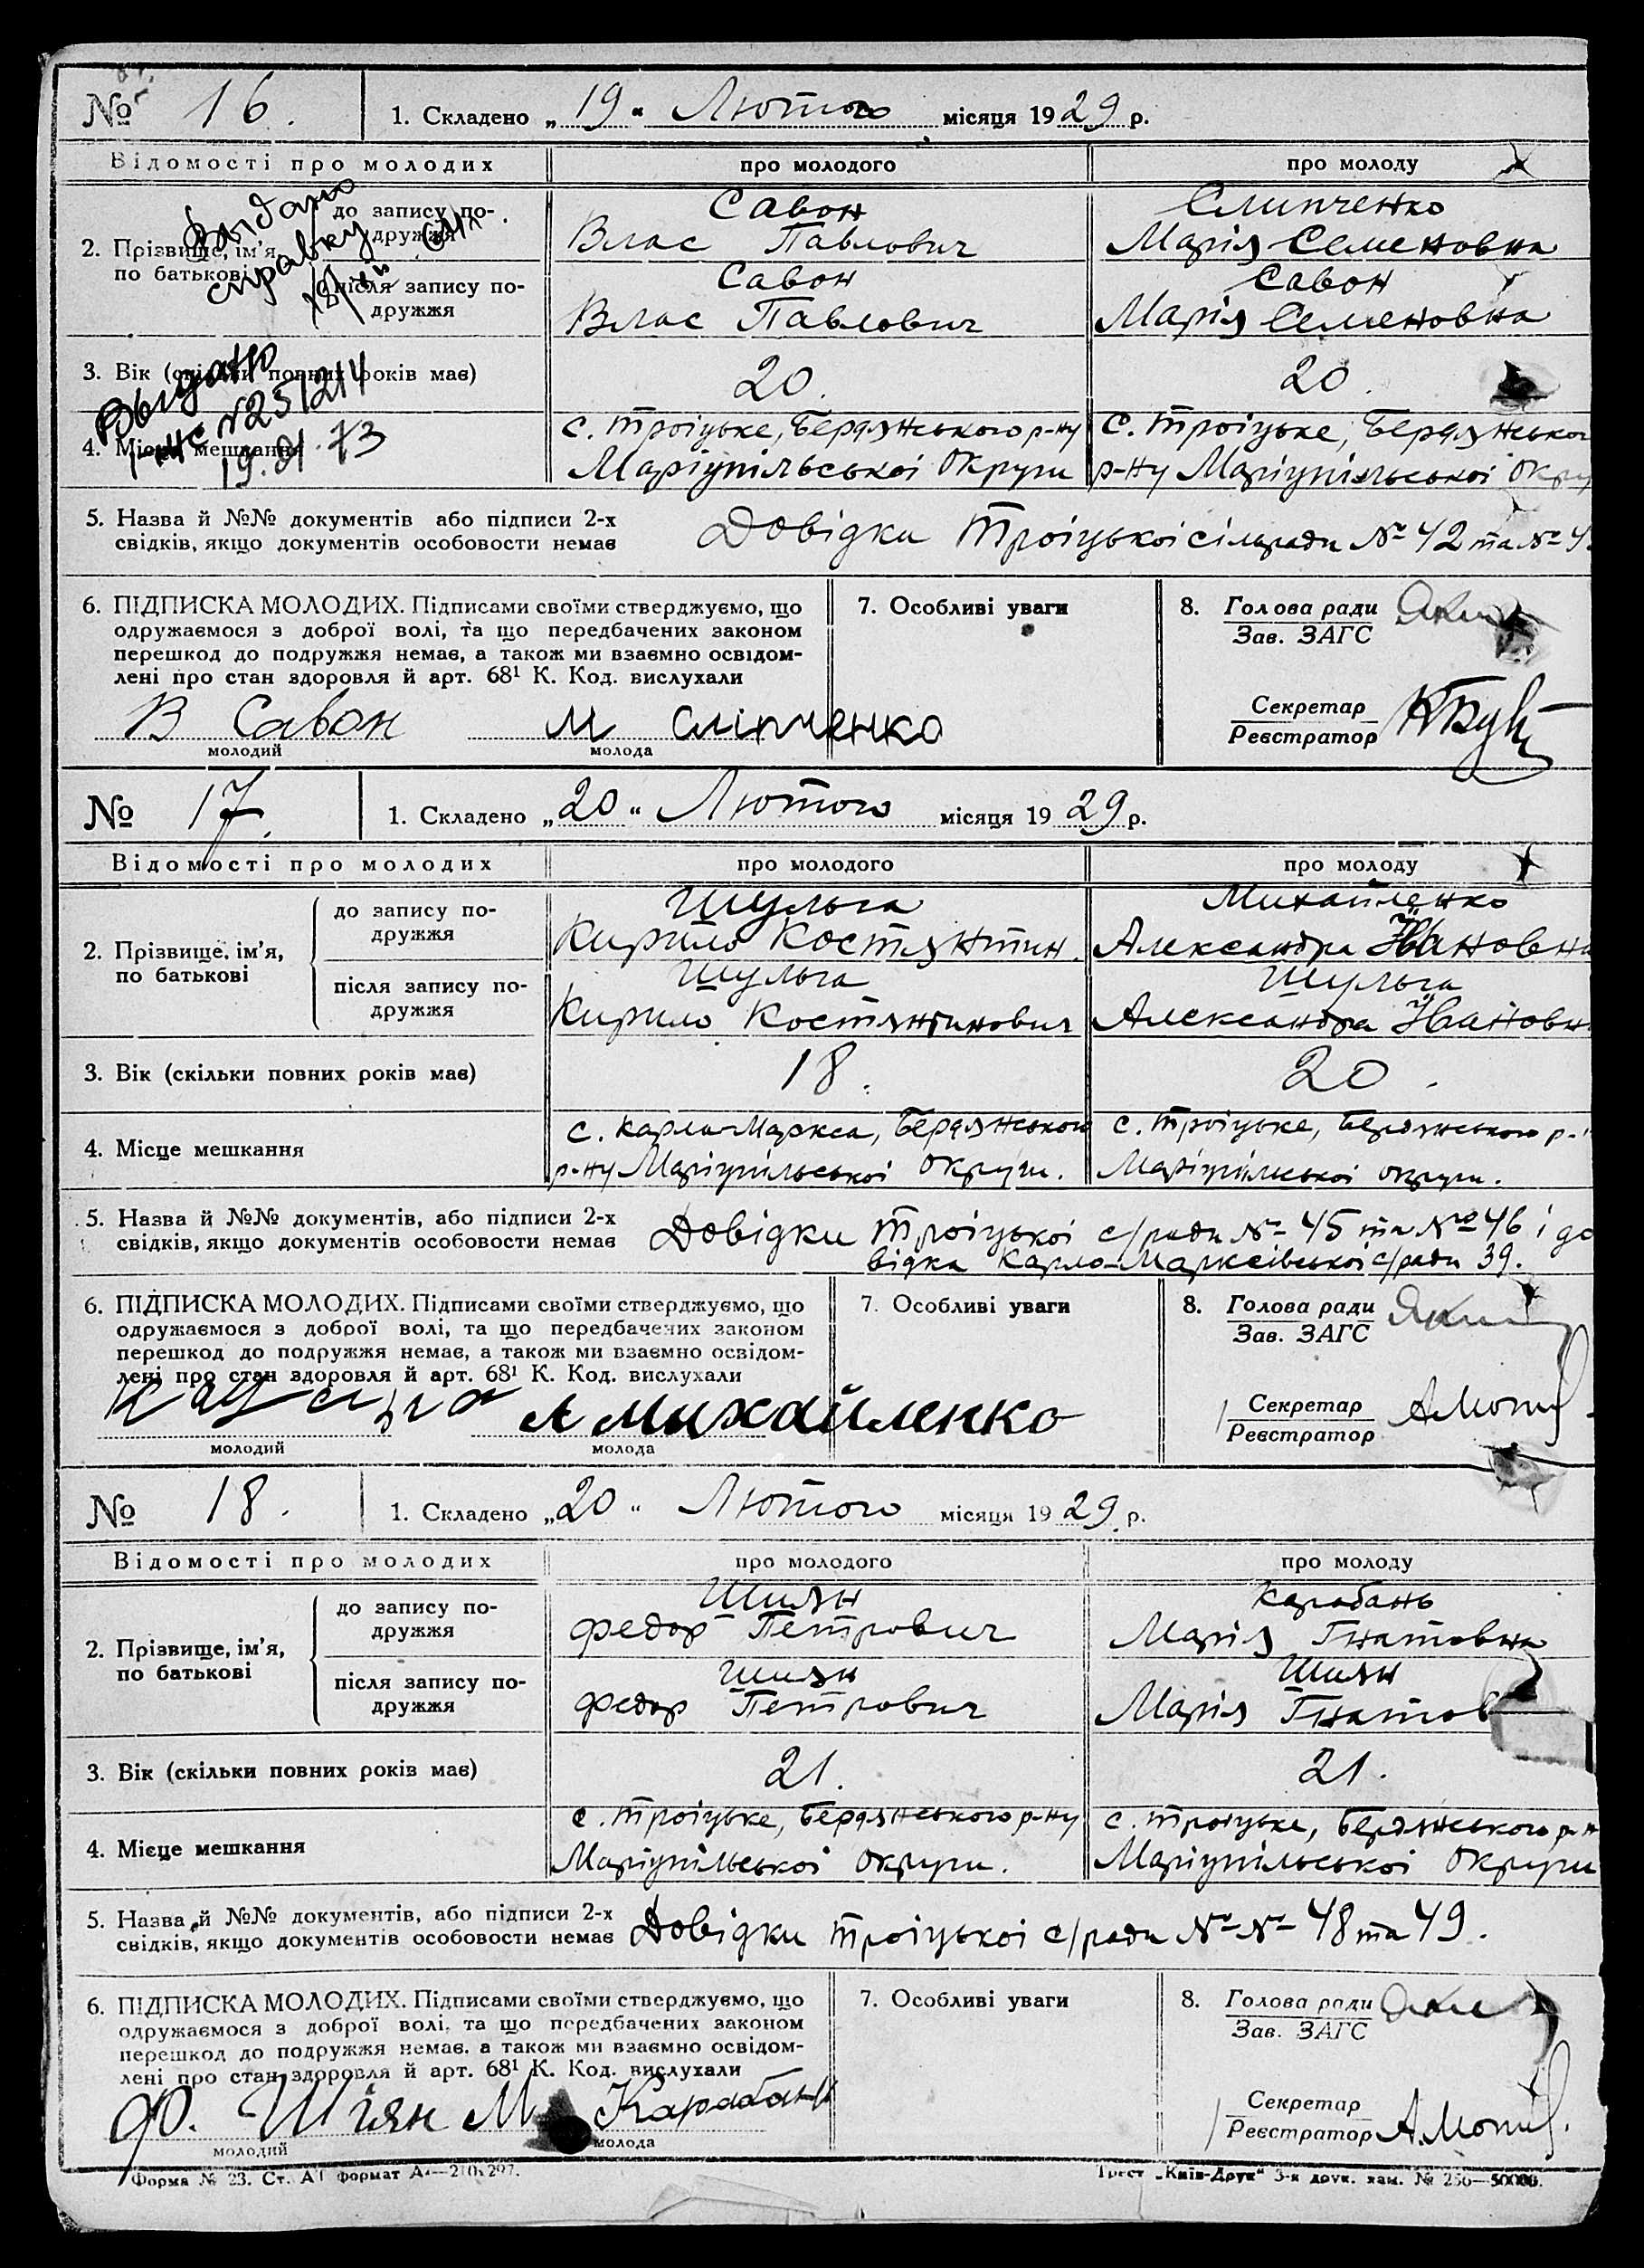 № 16. 1. Складено „19“ Лютого місяця 1929 р.
Відомості про молодих про молодого про молоду
2. Прізвище, ім'я, по батькові
до запису по-
дружжя
Савон
Влас Павлович
Слипченко
Марія Семеновна
після запису по-
дружжя
Савон
Влас Павлович
Савон
Марія Семеновна
Видано
справку
3. Вік (скільки повних років має) 20. 20.
Выдано
N251214
19. 73
4. Місце мешкання
с. Троіцьке, Бердянського р-ну
Маріупільської Округи
с. Троіцьке, Бердянськог
р-ну Маріупільської Окру
5. Назва й №№ документів або підписи 2-х
свідків, якщо документів особовости немає
Довідки Троіцькоі сільради № 42 та №
6. ПІДПИСКА МОЛОДИХ. Підписами своїми стверджуємо, що
одружаємося з доброї волі, та що передбачених законом
перешкод до подружжя немає, а також ми взаємно освідом-
лені про стан здоровля й арт. 68¹ К. Код. вислухали
В Савон М Сліпченко
молодий молода
7. Особливі уваги
8. Голова ради
Зав. ЗАГС
Секретар
Реєстратор
№ 17. 1. Складено „20“ Лютого місяця 1929 р.
Відомості про молодих про молодого про молоду
2. Прізвище, ім'я,
по батькові
до запису по-
дружжя
Шульга
Кирило Костянтин.
Михайленко
Александра Івановна
після запису по-
дружжя
Шульга
Кирило Костянтинович
Шульга
Александра Івановн
3. Вік (скільки повних років має) 18. 20.
4. Місце мешкання
с. Карла-Маркса, Бердянського
р-ну Маріупільської Округи.
с. Троіцьке, Бердянського р-
Маріупільської округи.
5. Назва й №№ документів, або підписи 2-х
свідків, якщо документів особовости немає
Довідки Троіцькоі с/ради № 45 та № 46 і до
відка Карло-Марксівськоі с/ради 39.
6. ПІДПИСКА МОЛОДИХ. Підписами своїми стверджуємо, що
одружаємося з доброї волі, та що передбачених законом
перешкод до подружжя немає, а також ми взаємно освідом-
лені про стан здоровля й арт. 68¹ К. Код. вислухали
А Михайленко
молодий молода
7. Особливі уваги
8. Голова ради
Зав. ЗАГС
Секретар
Реєстратор
№ 18. 1. Складено „20“ Лютого місяця 1929 р.
Відомості про молодих про молодого про молоду
2. Прізвище, ім'я,
по батькові
до запису по-
дружжя
Шиян
Федор Петрович
Карабань
Марія Гнатовна
після запису по-
дружжя
Шиян
Федор Петрович
Шиян
Марія Гнатов
3. Вік (скільки повних років має) 21. 21.
4. Місце мешкання
с. Троіцьке, Бердянського р-ну
Маріупільської округи.
с. Троіцьке, Бердянського р-н
Маріупільської Округи
5. Назва й №№ документів, або підписи 2-х
свідків, якщо документів особовости немає
Довідки Троіцькоі с/ради №№ 48 та 49.
6. ПІДПИСКА МОЛОДИХ. Підписами своїми стверджуємо, що
одружаємося з доброї волі, та що передбачених законом
перешкод до подружжя немає, а також ми взаємно освідом-
лені про стан здоровля й арт. 68¹ К. Код. вислухали
Ф. Шіян М Карабань
молодий молода
7. Особливі уваги
8. Голова ради
Зав. ЗАГС
Секретар
Реєстратор
Форма № 23. Ст. А1 формат А4—210х297. Трест „Київ-Друк“ 3-я друк. зам. № 256—50000.